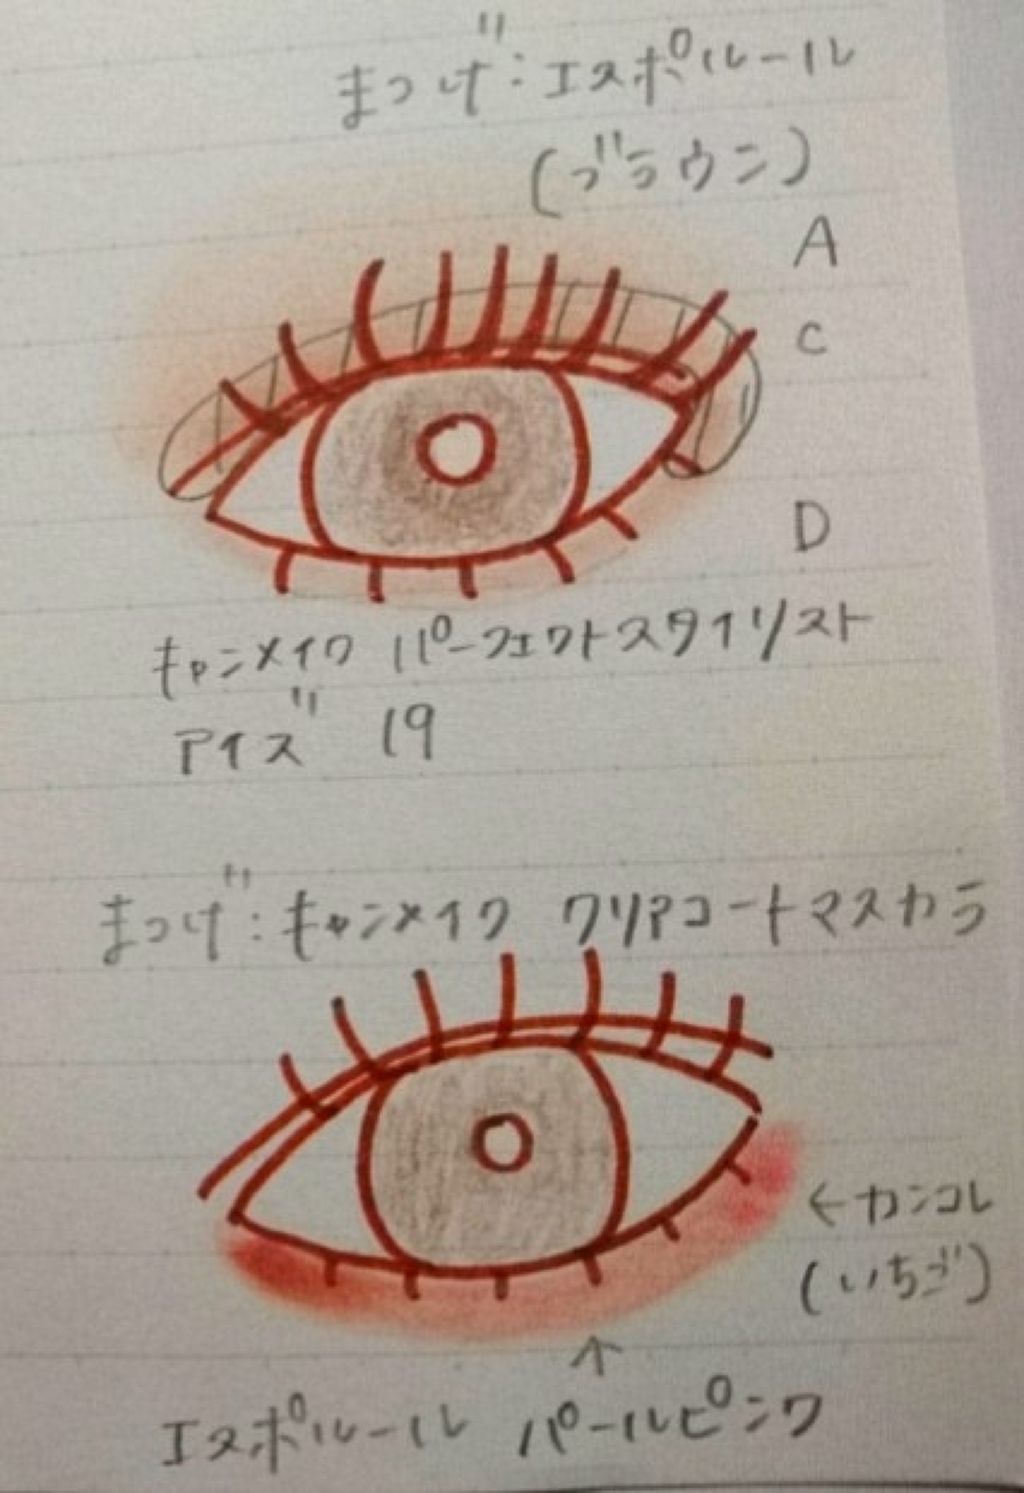 まつげ:エスポルール
(ブラウン)
A
C
D
キャンメイク パーフェクトスタイリスト
アイズ 19
まつげ:キャンメイク クリアコートマスカラ
←カンコレ
(いちご)
↑
エスポルール パールピンク